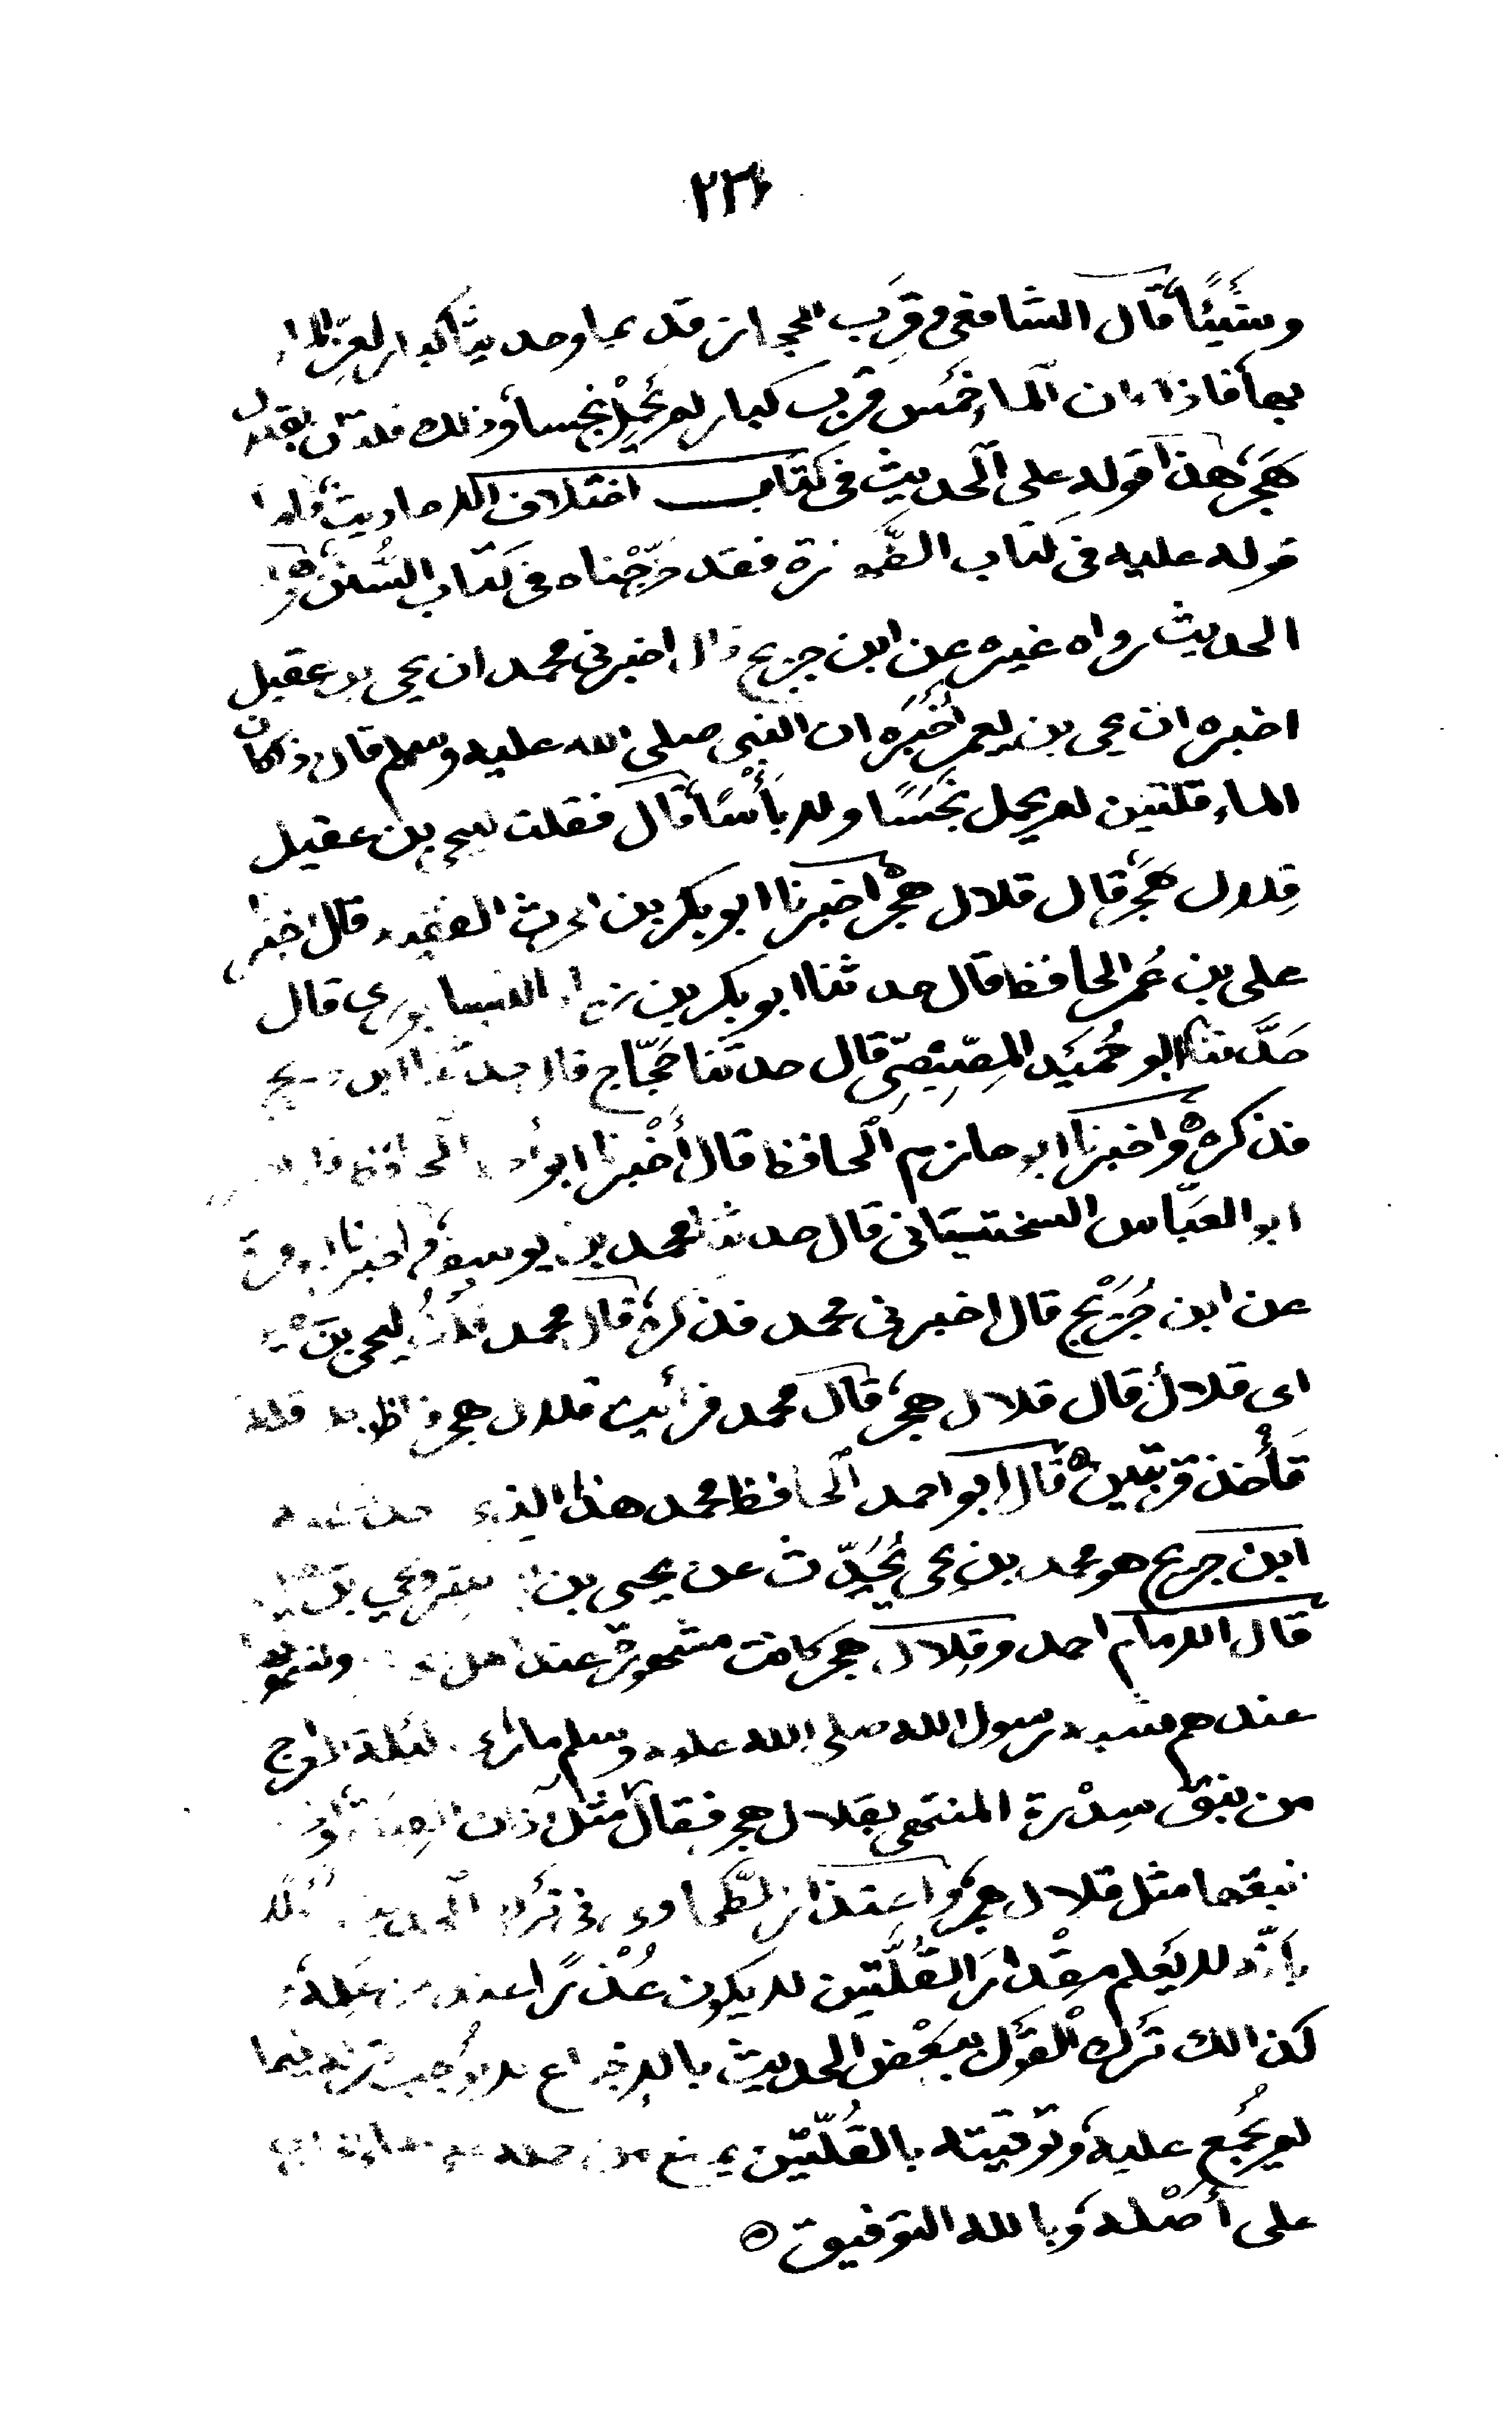 ٢٣٦
وشيئا قال الشافعي وقرب الحجاز قديما وحديثا كبار لعز الماء
بها فاذا كان الماء خمس قرب كبار لم يحمل نجسا وذلك قلتان بقلال
هجر هذا قوله على الحديث في كتاب اختلاف الاحاديث فاما
قوله عليه في كتاب الطهارة فقد خرجناه في كتاب السنن وهذا
الحديث رواه غيره عن ابن جريج قال اخبرني محمد ان يحيى بن عقيل
اخبره ان يحيى بن يعمر اخبره ان النبي صلى الله عليه وسلم قال اذا كان
الماء قلتين لم يحمل نجسا ولا بأسا قال فقلت ليحيى بن عقيل
قلال هجر قال قلال هجر اخبرنا ابو بكر بن الحرث الفقيه قال اخبرنا
علي بن عمر الحافظ قال حدثنا ابو بكر بن زياد النيسابوري قال
حدثنا ابو حميد المصيصي قال حدثنا حجاج قال حدثنا ابن جريج
فذكره واخبرنا ابو حازم الحافظ قال أخبرنا ابو احمد الحافظ قال
ابو العباس السختياني قال حدثنا محمد بن يوسف اخبرنا ابو قرة
عن ابن جريج قال اخبرني محمد فذكره قال محمد قلت ليحيى بن
اي قلال قال قلال هجر قال محمد فرأيت قلال هجر فاظن كل قلة
تأخذ قربتين قال ابو احمد الحافظ محمد هذا الذي حدث عنه
ابن جريج هو محمد بن يحيى يحدث عن يحيى بن ويحيى بن
قال الامام احمد وقلال هجر كانت مشهورة عند اهل
عندهم شبه رسول الله صلى الله عليه وسلم ما رأى ليلة المعراج
من نبق سدرة المنتهى بقلال هجر فقال مثل آذان الفيلة واذا
نبقها مثل قلال هجر واعتذار الطحاوي في ترك الحديث
بأنه لا يعلم مقدار القلتين لا يكون عذرا عند من علمه
كذالك ترك القول ببعض الحديث بالاجماع لا يوجب تركه فيما
لم يجمع عليه وتوقيته بالقلتين يمنع من حمله على الماء الجاري
على أصله وبالله التوفيق